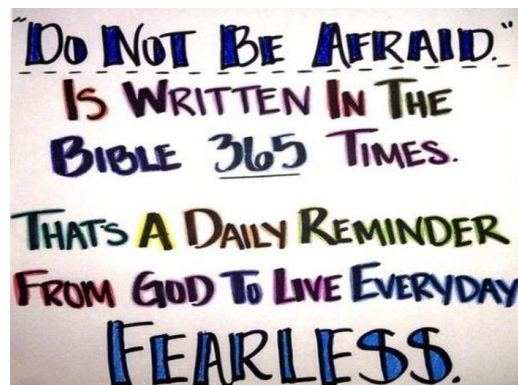 "DO NOT BE AFRAID."
IS WRITTEN IN THE
BIBLE 365 TIMES.
THATS A DAILY REMINDER
FROM GOD TO LIVE EVERYDAY
FEARLESS.